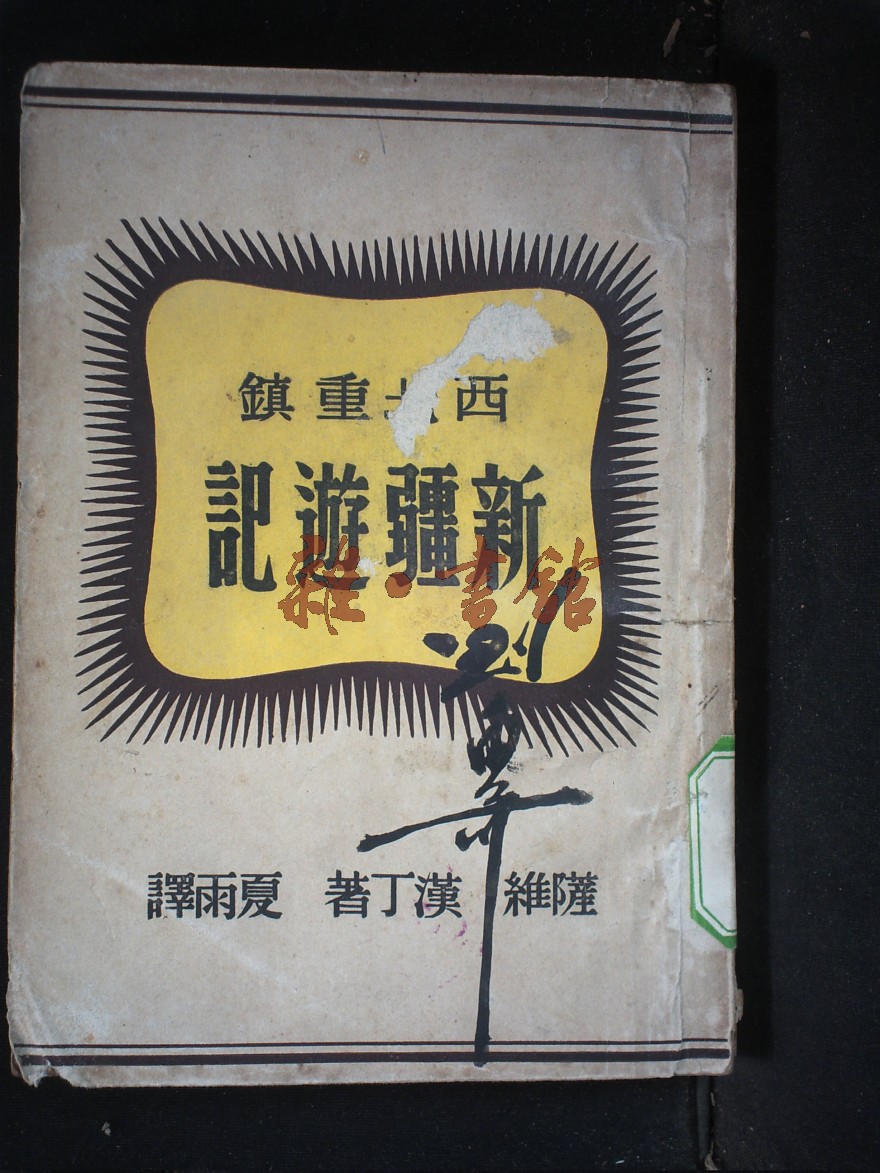 西北重鎮
新疆遊記
雜·書館
薩維 漢丁著 夏雨譯